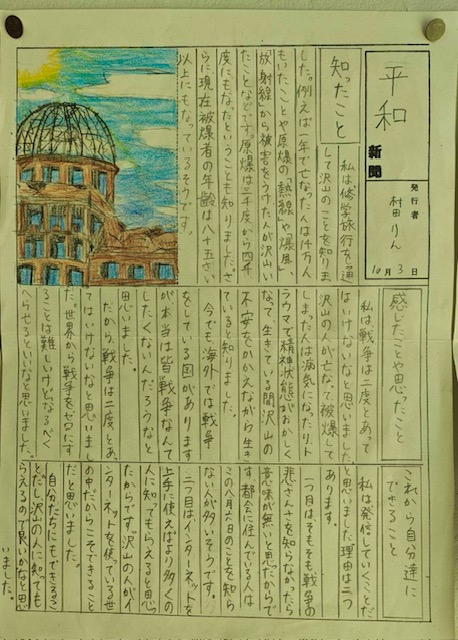 平和
新聞
発行者
村田りん
10月3日
知ったこと
私は修学旅行を通
して沢山のことを知りま
した。例えば一年で亡なった人は14万人
もいたことや原爆の「熱線」や「爆風」
「放射線」から被害をうけた人が沢山い
たことなどです。原爆は三千度から四千
度にもなったということも知りました。さ
らに現在被爆者の年齢は八十五さい
以上にもなっているそうです。
感じたことや思ったこと
私は戦争は二度とあって
はいけないなと思いました。
沢山の人が亡なって、被爆して
しまった人は病気になったり、ト
ラウマで精神状態がおかしく
なって、生きている間、沢山の
不安をかかえながら生き
ていると知りました。
今でも海外では戦争
をしている国があります
が本当は皆戦争なんて
したくないんだろうなと
思いました。
だから、戦争は二度とあっ
てはいけないなと思いまし
た。世界から戦争をゼロにす
ることは難しいけど、なるべく
へらせるといいなと思いました。
これから自分達に
できること
私は発信していくことだ
と思いました。理由は二つ
あります。
一つ目はそもそも戦争の
悲さんさを知らなかったら
意味が無いと思たからで
す。都会に住んでいる人は
この八月六日のことを知ら
ない人が多いそうです。
二つ目はインターネットを
上手に使えばより多くの
人に知てもらえると思っ
たからです。沢山の人がイ
ンターネットを使っている世
の中だからこそできること
だと思いました。
自分たちにもできるこ
とだし、沢山の人に知ても
らえるので良いかなと思
いました。